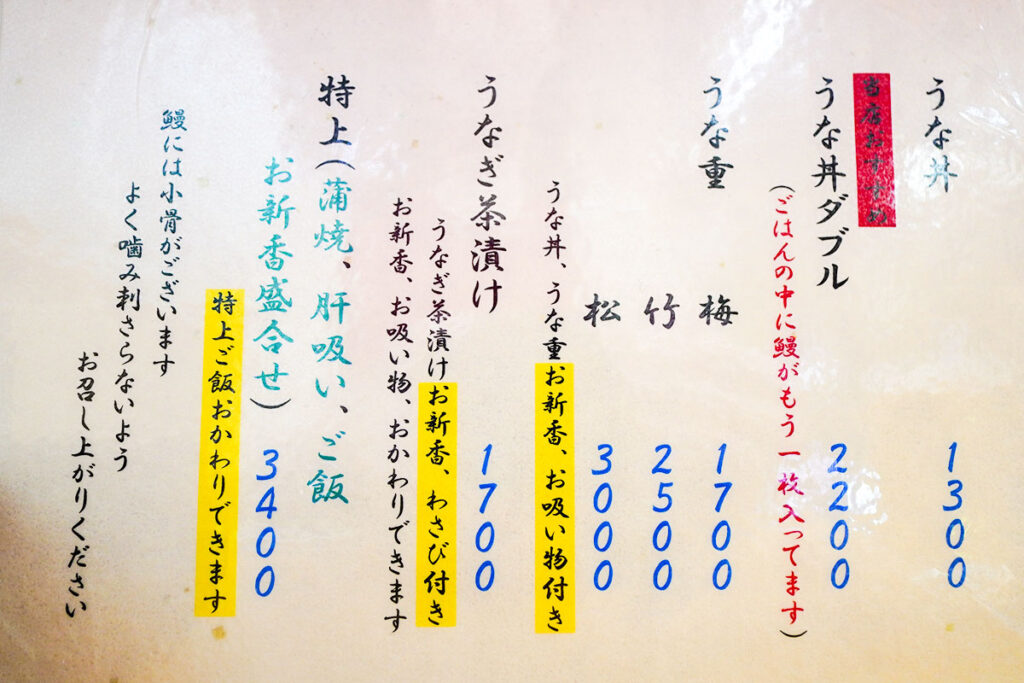 うな丼 1300
当店おすすめ
うな丼ダブル 2200
（ごはんの中に鰻がもう一枚入ってます）
うな重 梅 1700
竹 2500
松 3000
うな丼、うな重お新香、お吸い物付き
うなぎ茶漬け 1700
うなぎ茶漬けお新香、わさび付き
お新香、お吸い物、おかわりできます
特上（蒲焼、肝吸い、ご飯
お新香盛合せ） 3400
特上ご飯おかわりできます
鰻には小骨がございます
よく噛み刺さらないよう
お召し上がりください